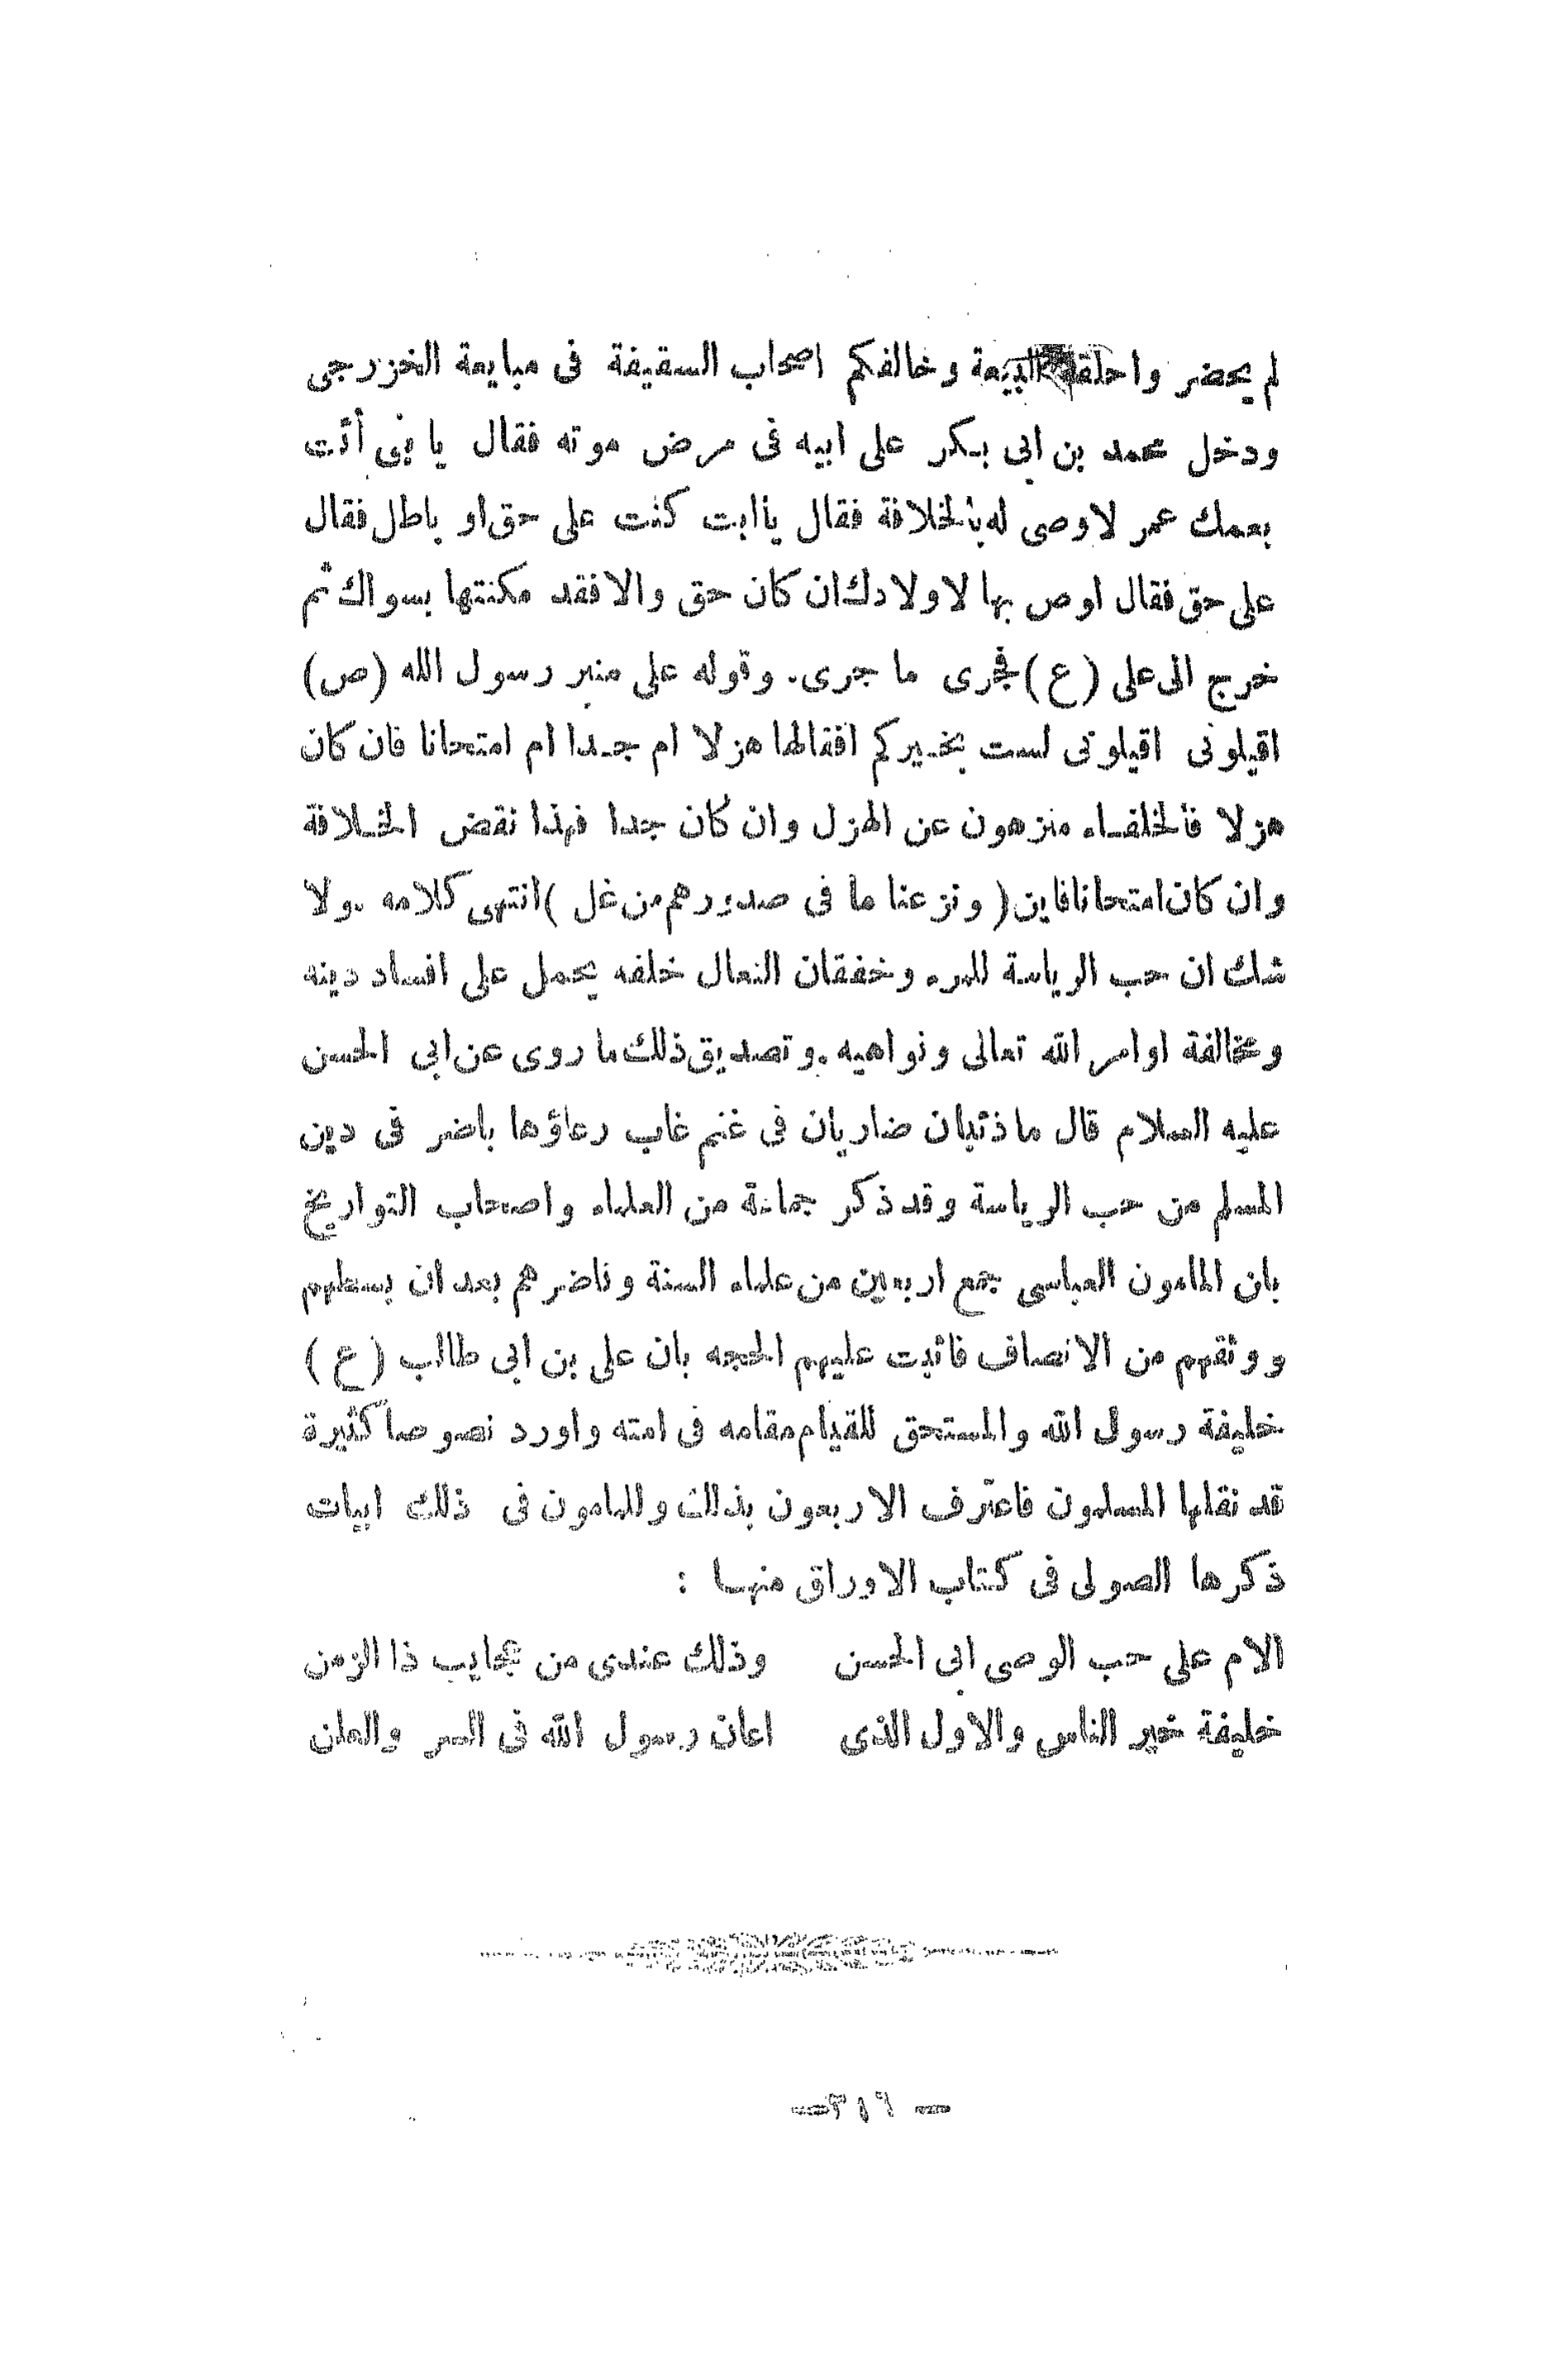 لم يحضر واحلفه البيعة وخالفكم اصحاب السقيفة فى مبايعة الخزرجى
ودخل محمد بن ابى بكر على ابيه فى مرض موته فقال يا بنى أئت
بعمك عمر لاوصى له بالخلافة فقال ياأبت كنت على حق او باطل فقال
على حق فقال اوص بها لاولادك ان كان حق والا فقد مكنتها بسواك ثم
خرج الى على (ع) فجرى ما جرى. وقوله على منبر رسول الله (ص)
اقيلونى اقيلونى لست بخيركم افقالها هزلا ام جدا ام امتحانا فان كان
هزلا فالخلفاء منزهون عن الهزل وان كان جدا فهذا نقض الخلافة
وان كان امتحانا فاين (ونزعنا ما فى صدورهم من غل) انتهى كلامه . ولا
شك ان حب الرياسة للمرء وخفقان النعال خلفه يحمل على افساد دينه
ومخالفة اوامر الله تعالى ونواهيه . وتصديق ذلك ما روى عن ابى الحسن
عليه السلام قال ما ذئبان ضاريان فى غنم غاب رعاؤها باضر فى دين
المسلم من حب الرياسة وقد ذكر جماعة من العلماء واصحاب التواريخ
بان المامون العباسى جمع اربعين من علماء السنة وناضرهم بعد ان بسطهم
ووثقهم من الانصاف فاثبت عليهم الحجه بان على بن ابى طالب (ع)
خليفة رسول الله والمستحق للقيام مقامه فى امته واورد نصوصا كثيرة
قد نقلها المسلمون فاعترف الاربعون بذلك وللمامون فى ذلك ابيات
ذكرها الصولى فى كتاب الاوراق منها :
الام على حب الوصى ابى الحسن وذلك عندى من عجايب ذا الزمن
خليفة خير الناس والاول الذى اعان رسول الله فى السر والعلن
— ٣١٦ —